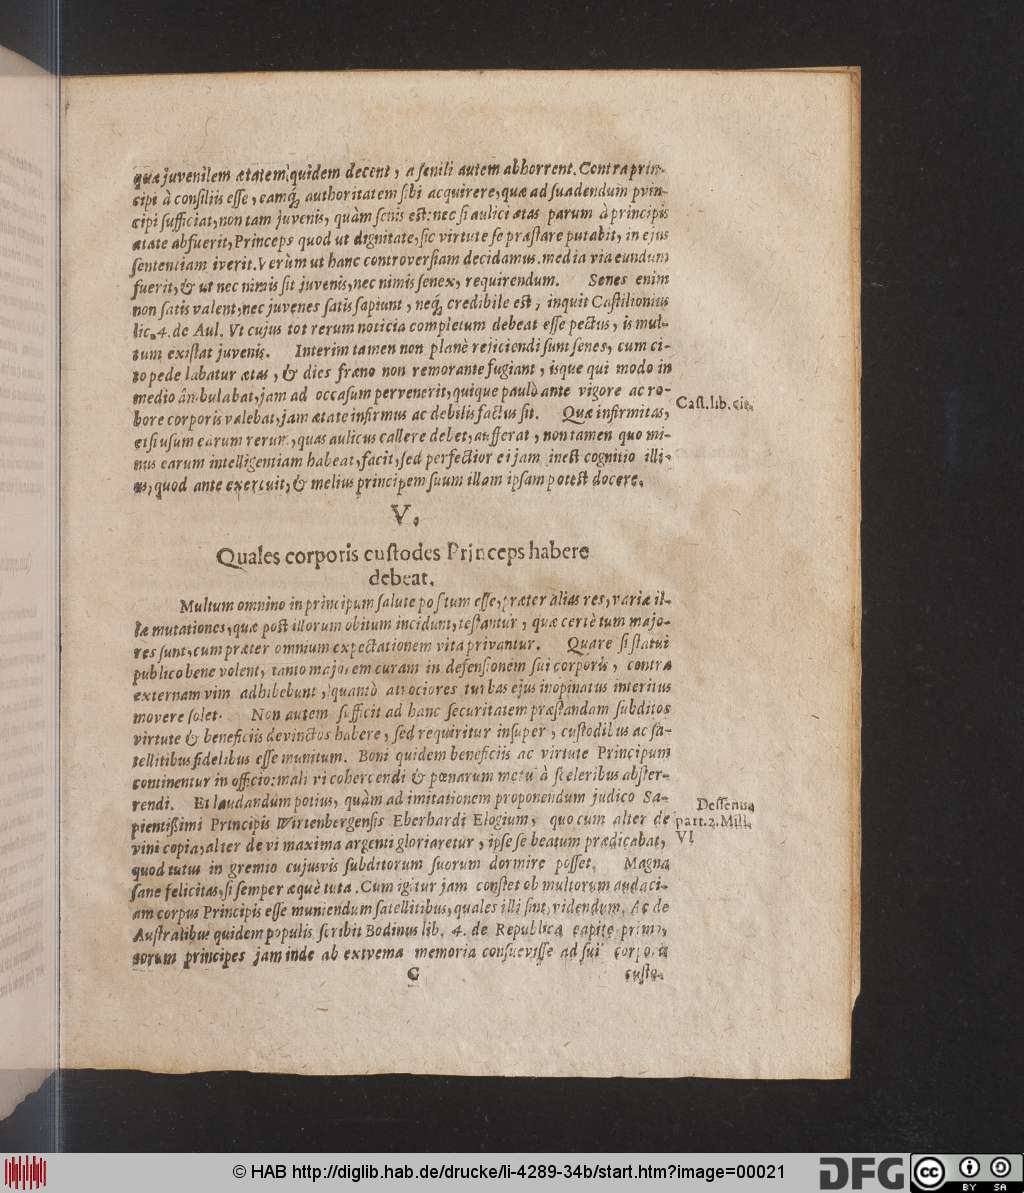 quæ juvenilem ætatem quidem decent, a senili autem abhorrent. Contra prin-
cipi à consiliis esse, eamq́; authoritatem sibi acquirere, quæ ad suadendum prin-
cipi sufficiat, non tam juvenis, quàm senis est: nec si aulici ætas parum à principis
ætate absuerit, Princeps quod ut dignitate, sic virtute se præstare putabit, in ejus
sententiam iverit. Verùm ut hanc controversiam decidamus. media via eundum
fuerit, & ut nec nimis sit juvenis, nec nimis senex, requirendum. Senes enim
non satis valent, nec juvenes satis sapiunt, neq́; credibile est, inquit Castilionius
lic. 4. de Aul. Vt cujus tot rerum noticia completum debeat esse pectus, is mul-
tum existat juvenis. Interim tamen non planè rejiciendi sunt senes, cum ci-
to pede labatur ætas, & dies fræno non remorante fugiant, isque qui modo in
medio âmbulabat, jam ad occasum pervenerit, quique paulò ante vigore ac ro-
bore corporis valebat, jam ætate infirmus ac debilis factus sit. Quæ infirmitas,
etsi usum earum rerum, quas aulicus callere debet, aufferat, non tamen quo mi-
nus earum intelligentiam habeat, facit, sed perfectior ei jam inest cognitio illi-
us, quod ante exercuit, & melius principem suum illam ipsam potest docere.
Cast. lib. cit.
V.
Quales corporis custodes Princeps habere
debeat.
Multum omnino in principum salute positum esse, præter alias res, variæ il-
læ mutationes, quæ post illorum obitum incidunt, testantur, quæ certè tum majo-
res sunt, cum præter omnium expectationem vita privantur. Quare si statui
publico bene volent, tanto majorem curam in defensionem sui corporis, contra
externam vim adhibebunt, quantò atrociores turbas ejus inopinatus interitus
movere solet. Non autem sufficit ad hanc securitatem præstandam subditos
virtute & beneficiis devinctos habere, sed requiritur insuper, custodibus ac sa-
tellitibus fidelibus esse munitum. Boni quidem beneficiis ac virtute Principum
continentur in officio: mali vi cohercendi & pœnarum metu à sceleribus abster-
rendi. Et laudandum potius, quàm ad imitationem proponendum judico Sa-
pientißimi Principis Wirtenbergensis Eberhardi Elogium, quo cum alter de
vini copia, alter de vi maxima argenti gloriaretur, ipse se beatum prædicabat,
quod tutus in gremio cujusvis subditorum suorum dormire posset. Magna
sane felicitas, si semper æquè tuta. Cum igitur jam constet ob multorum audaci-
am corpus Principis esse muniendum satellitibus, quales illi sint, videndum. Ac de
Australibus quidem populis scribit Bodinus lib. 4. de Republica capite primo,
eorum principes jam inde ab extrema memoria consuevisse ad sui corporis
Dessenius
part. 2. Mill.
VI
C
custo-
© HAB http://diglib.hab.de/drucke/li-4289-34b/start.htm?image=00021
DFG
cc
BY SA